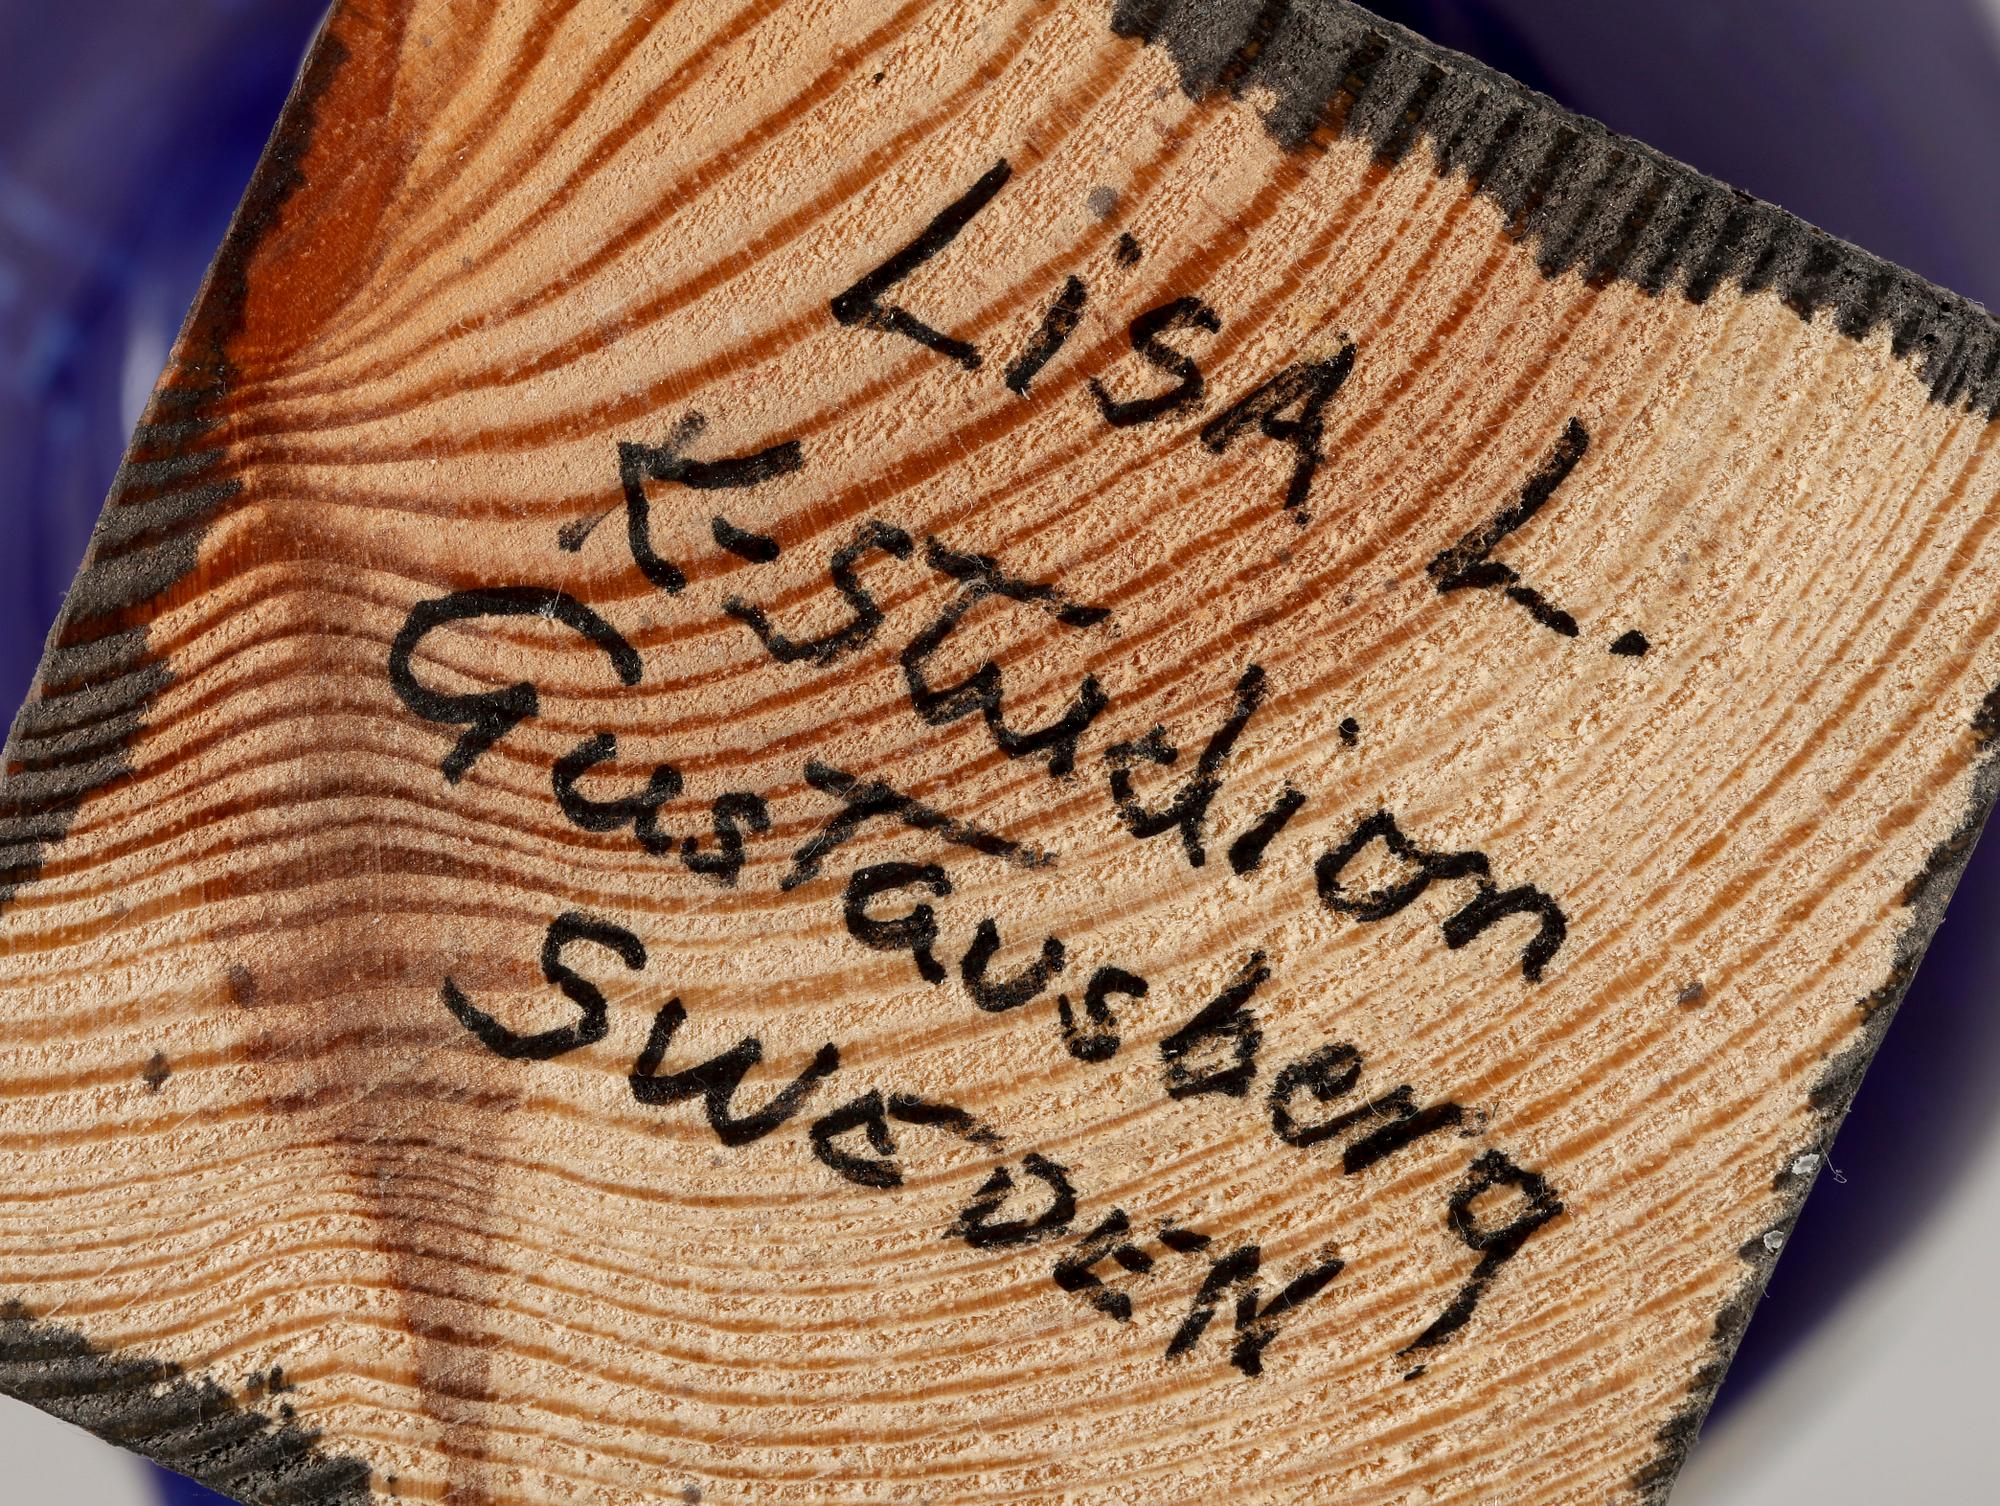 LiSA L.
K-STudion
Gustausberg
SWEDEN